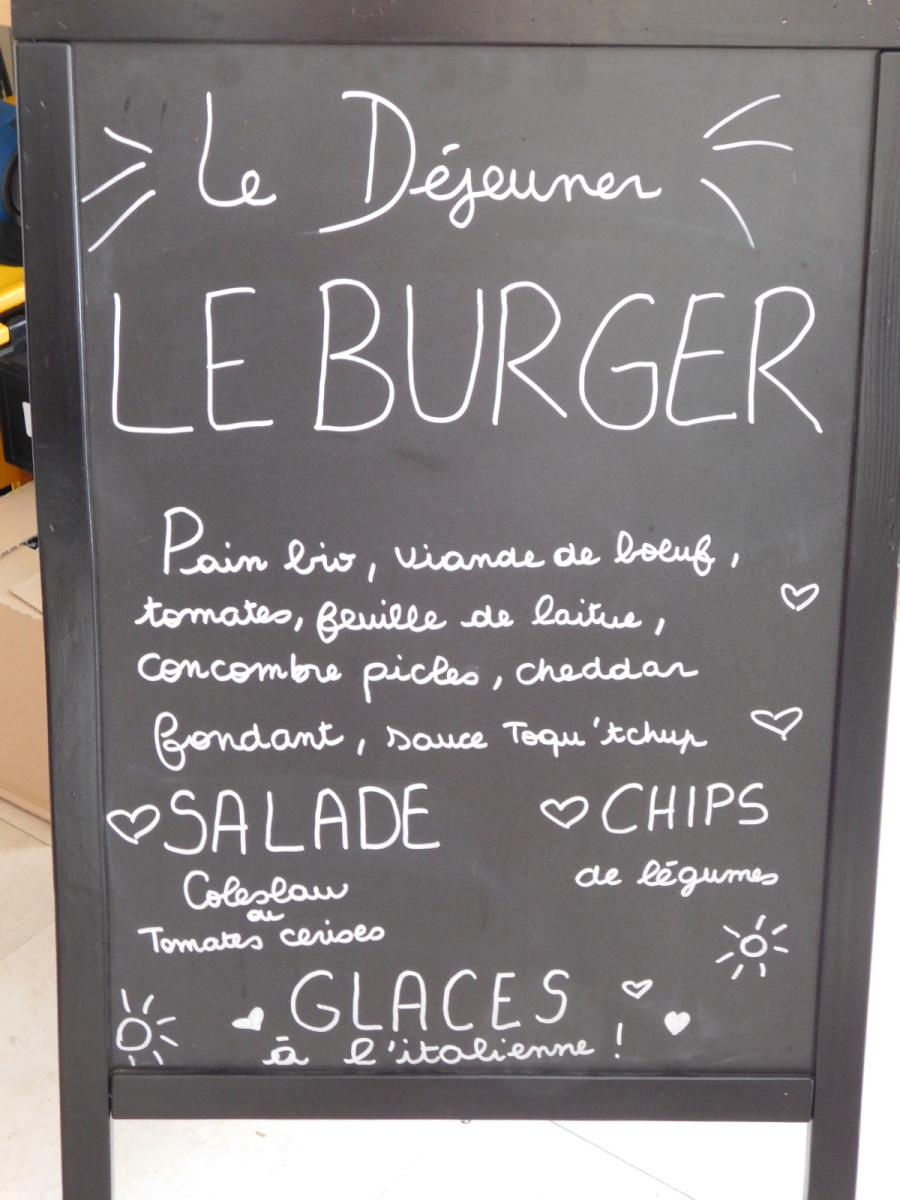 Le Déjeuner
LE BURGER
Pain bio, viande de boeuf,
tomates, feuille de laitue,
concombre picles, cheddar
fondant, sauce Toqu'tchup
SALADE
Coleslaw
ou
Tomates cerises
CHIPS
de légumes
GLACES
à l'italienne !